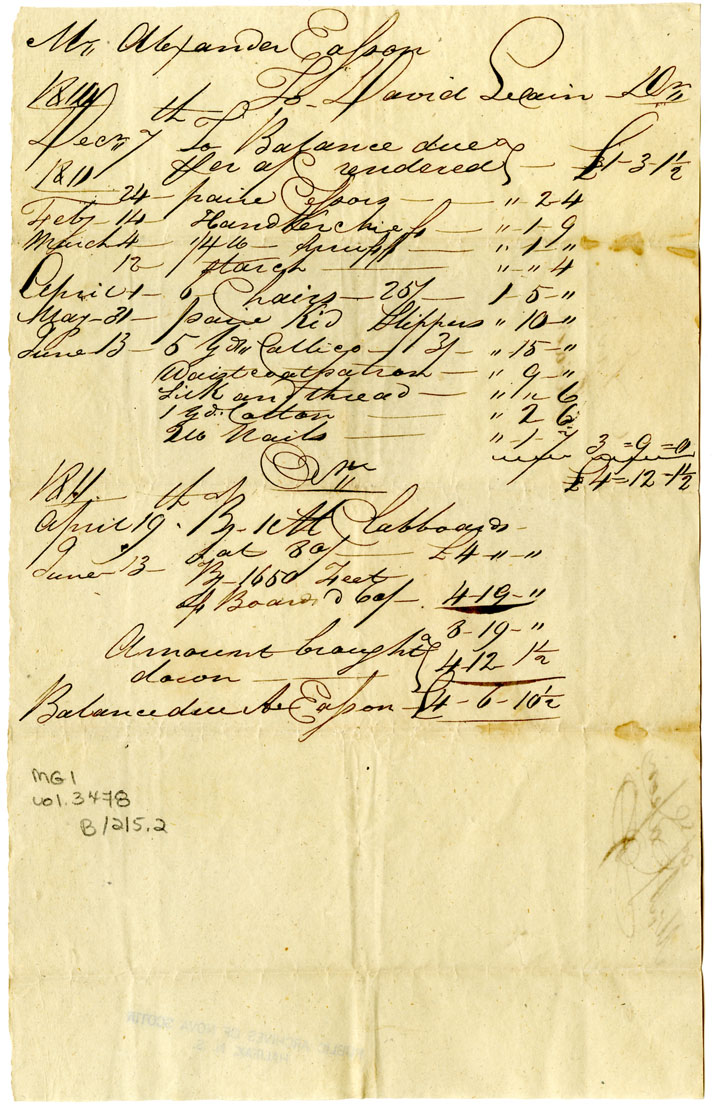 Mr,, Alexander Easson
To David Seain Dr,,
1810
Decr 7th To Balance due
1811 Per a/c rendered £1-3-1½
24 paire Cessors ,, 2-4
Feby 14 Handkerchief ,, 1-9
March 4 ,, 1 ,,
12 starch ,, ,, 4
April 1 6 Chairs 25/ 1-5-,,
May 31 paire Kid Slippers ,, 10 ,,
June 13 5 yds,, Callico 3/ ,, 15 ,,
Waistcoatpatron ,, 9 ,,
Silk and thread ,, ,, 6
1 yd. Cotton ,, 2 6
2 lb Nails ,, 1-7 3=9=0
£4=12-1½
Cr,,
1811
April 19th By 1 M Clabboards
at 80/ £4 ,, ,,
June 13 By 1650 Feet
of Boards 60/ 4-19-,,
8-19-,,
Amount brought
down 4-12 1½
Balance due A Easson £4-6-10½
MG 1
vol. 3478
B/215.2
PUBLIC ARCHIVES OF NOVA SCOTIA
HALIFAX, N. S.